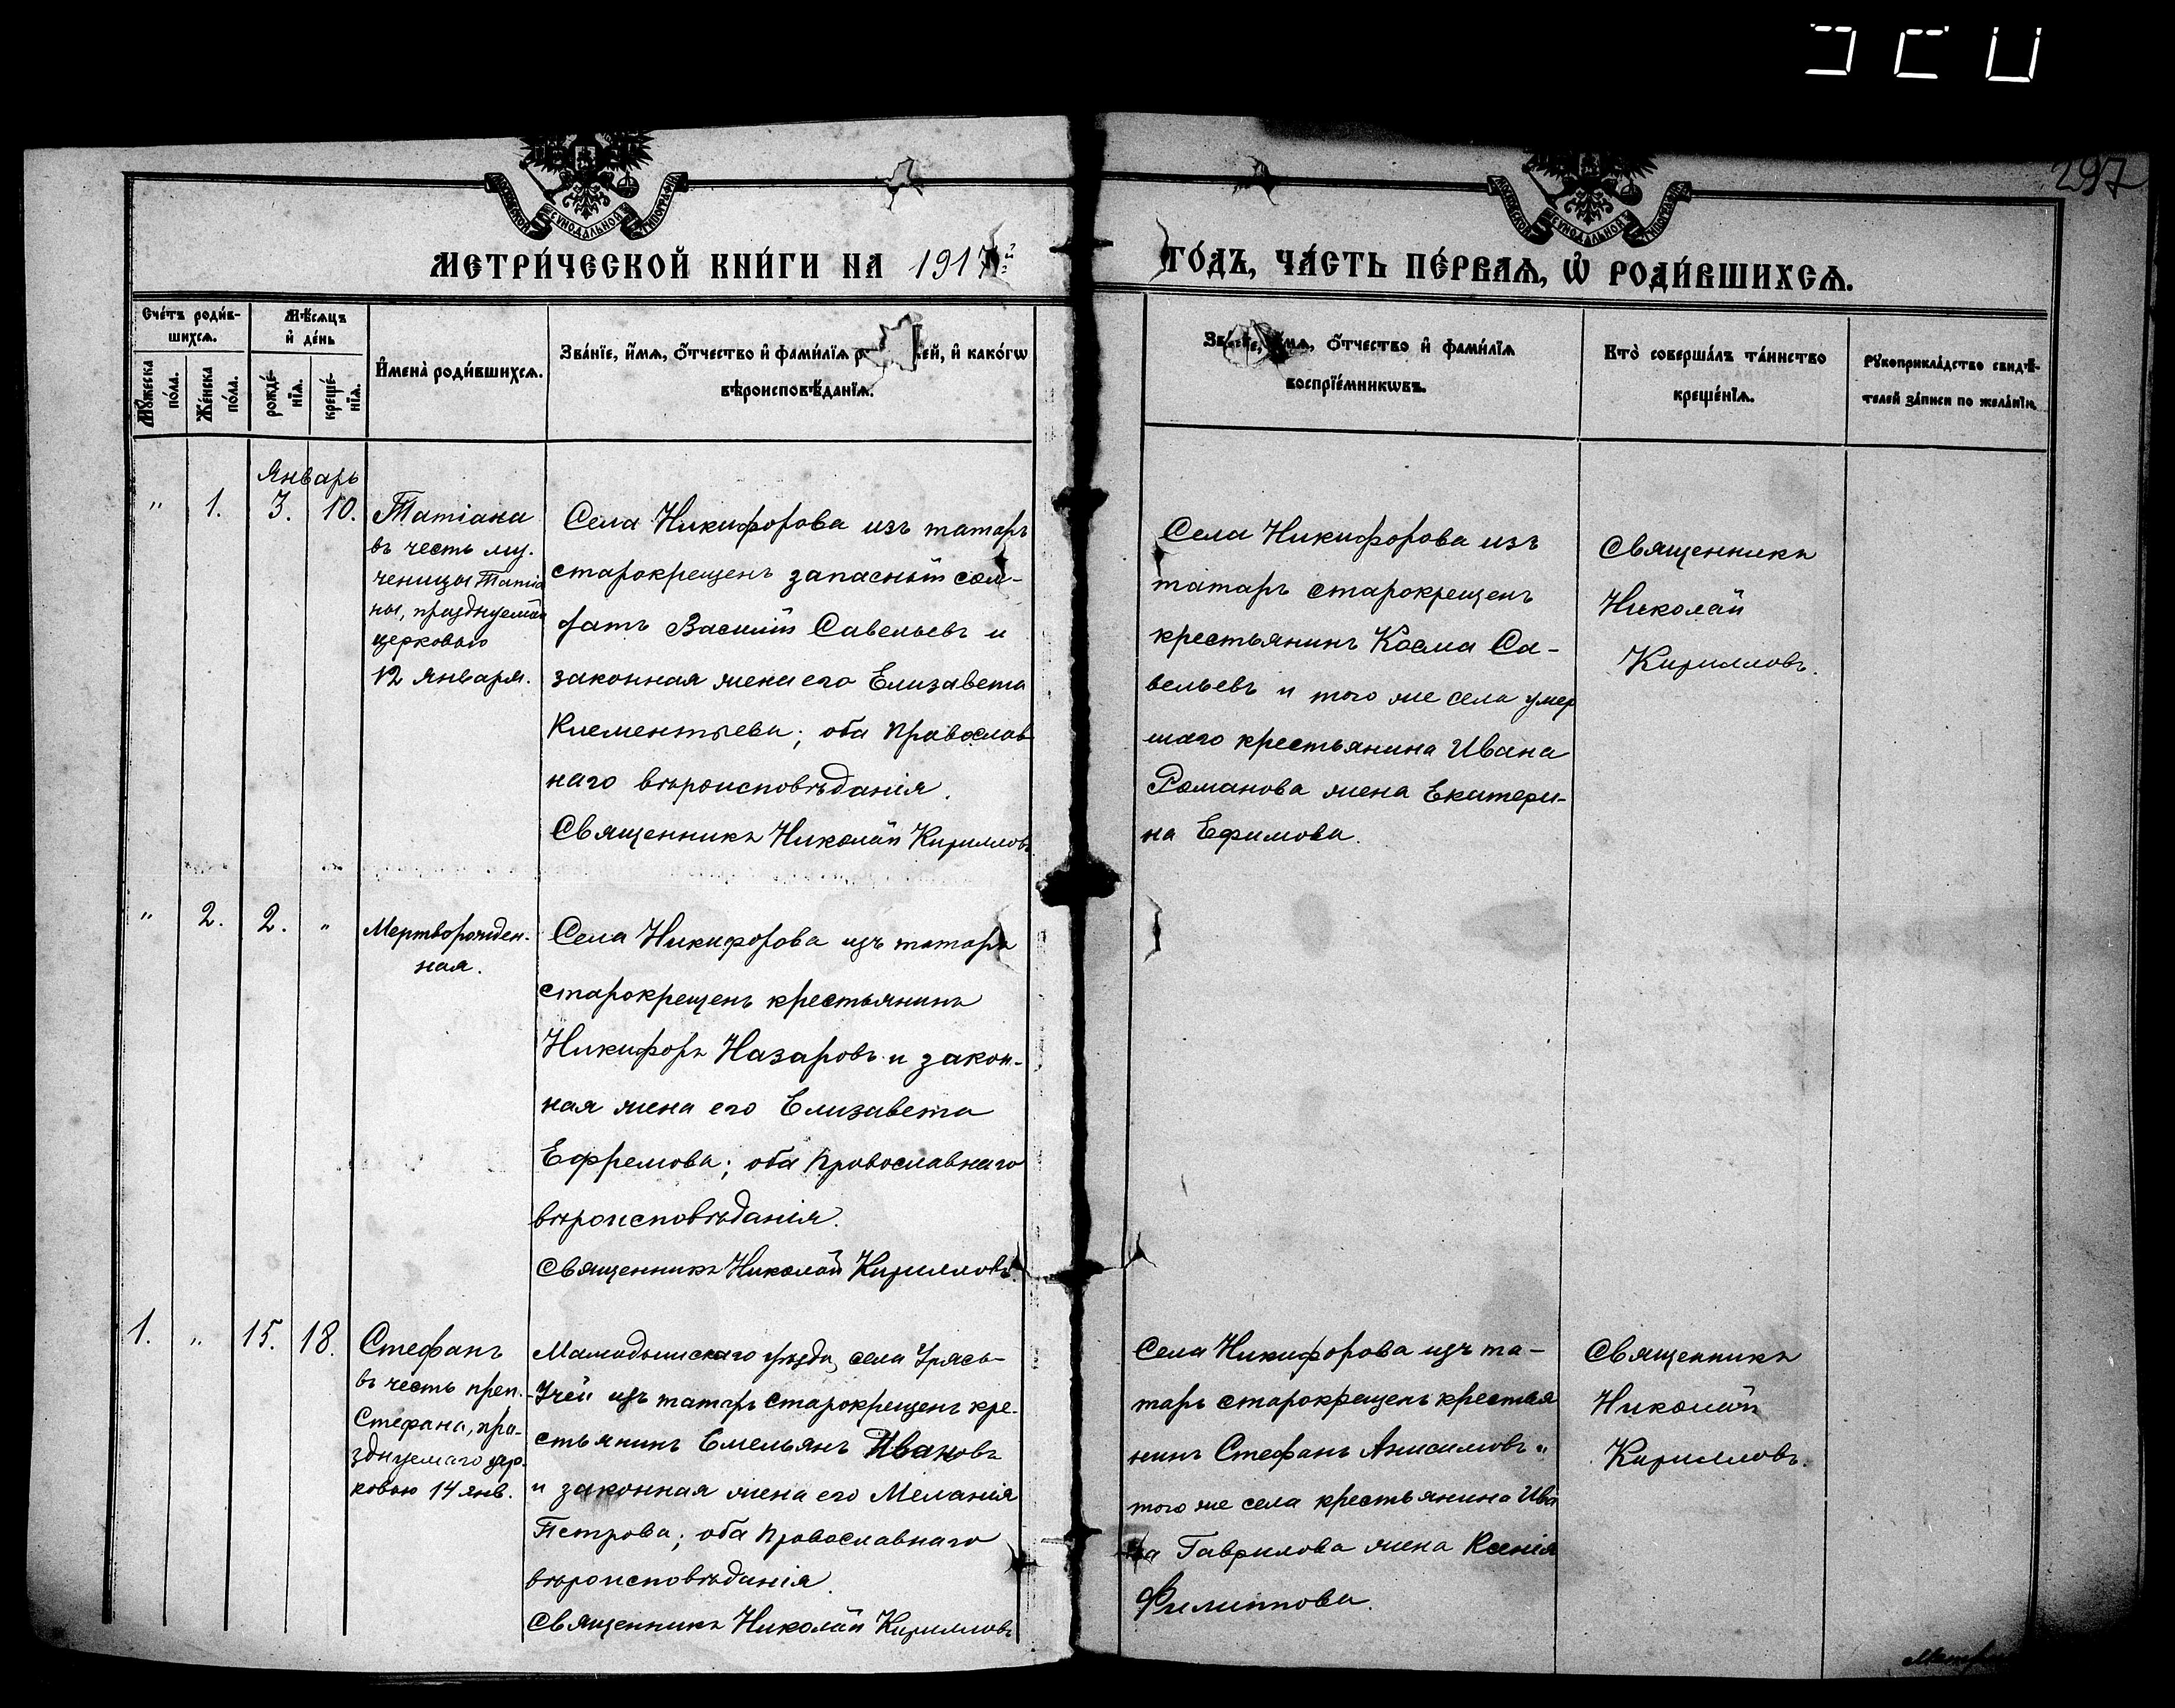 297
МОСКОВСКОЙ СѴНОДАЛЬНОЙ ТИПОГРАФІИ
МОСКОВСКОЙ СѴНОДАЛЬНОЙ ТИПОГРАФІИ
МЕТРИ́ЧЕСКОЙ КНИ́ГИ НА 1917й
ГО́ДЪ, ЧА́СТЬ ПЕ́РВАѦ, Ѽ РОДИ́ВШИХСѦ.
Сче́тъ роди́в-
шихсѧ.
Мѣ́сѧцъ
и҆ де́нь
Мꙋ́жеска
по́ла.
Же́нска
по́ла.
рожде́-
нїѧ.
креще́-
нїѧ.
И҆мена̀ роди́вшихсѧ.
Зва́нїе, и҆́мѧ, ѻ҆́тчество и҆ фами́лїѧ р ей, и҆ како́гѡ
вѣроисповѣ́данїѧ.
Зва́нїе, и҆́мѧ, ѻ҆́тчество и҆ фами́лїѧ
воспрїе́мникѡвъ.
Кто̀ соверша́лъ та́инство
креще́нїѧ.
Рꙋкоприкла́дство свидѣ́-
телей за́писи по жела́нїю.
Январь
" 1. 3. 10.
Татіана
въ честь му-
ченицы Татіа
ны, празднуемой
церковью
12 января.
Села Никифорова изъ татаръ
старокрещенъ запасный сол-
датъ Василій Савельевъ и
законная жена его Елизавета
Клементьева; оба православ
наго вѣроисповѣданія.
Священникъ Николай Кирилловъ
Села Никифорова изъ
татаръ старокрещенъ
крестьянинъ Косма Са-
вельевъ и того же села умер
шаго крестьянина Ивана
Романова жена Екатери-
на Ефимова.
Священникъ
Николай
Кирилловъ.
" 2. 2. "
Мертворожден-
ная.
Села Никифорова изъ татаръ
старокрещенъ крестьянинъ
Никифоръ Назаровъ и закон-
ная жена его Елизавета
Ефремова; оба православнаго
вѣроисповѣданія.
Священникъ Николай Кирилловъ.
1. " 15. 18.
Стефанъ
въ честь преп.
Стефана, пра-
зднуемаго цер-
ковью 14 янв.
Мамадышскаго уѣзда, села Урясь-
-Учей изъ татаръ старокрещенъ кре-
стьянинъ Емельянъ Ивановъ
и законная жена его Меланія
Петрова; оба православнаго
вѣроисповѣданія.
Священникъ Николай Кирилловъ
Села Никифорова изъ та-
таръ старокрещенъ крестья
нинъ Стефанъ Анисимовъ и
того же села крестьянина Ива
на Гаврилова жена Ксенія
Филиппова.
Священникъ
Николай
Кирилловъ.